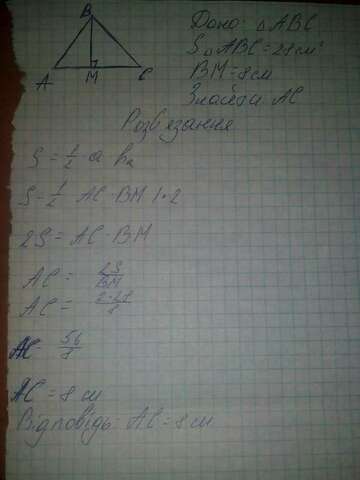 B
A M C
Дано: △ABC
S△ABC = 28см²
BM = 8см
Знайти AC
Розв'язання
S = 1/2 · a · hₐ
S = 1/2 AC · BM | · 2
2S = AC · BM
AC = 2S/BM
AC = 2·28/8
AC = 56/8
AC = 8 см
Відповідь: AC = 8 см